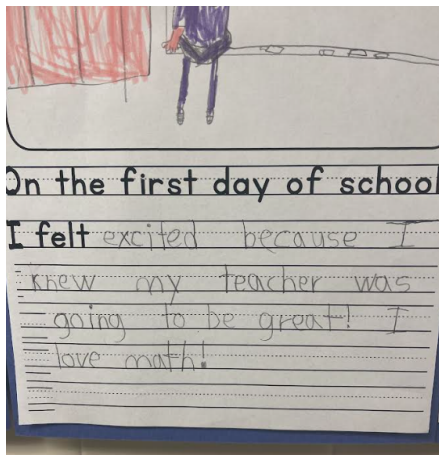 On the first day of school
I felt excited because I
knew my teacher was
going to be great! I
love math!